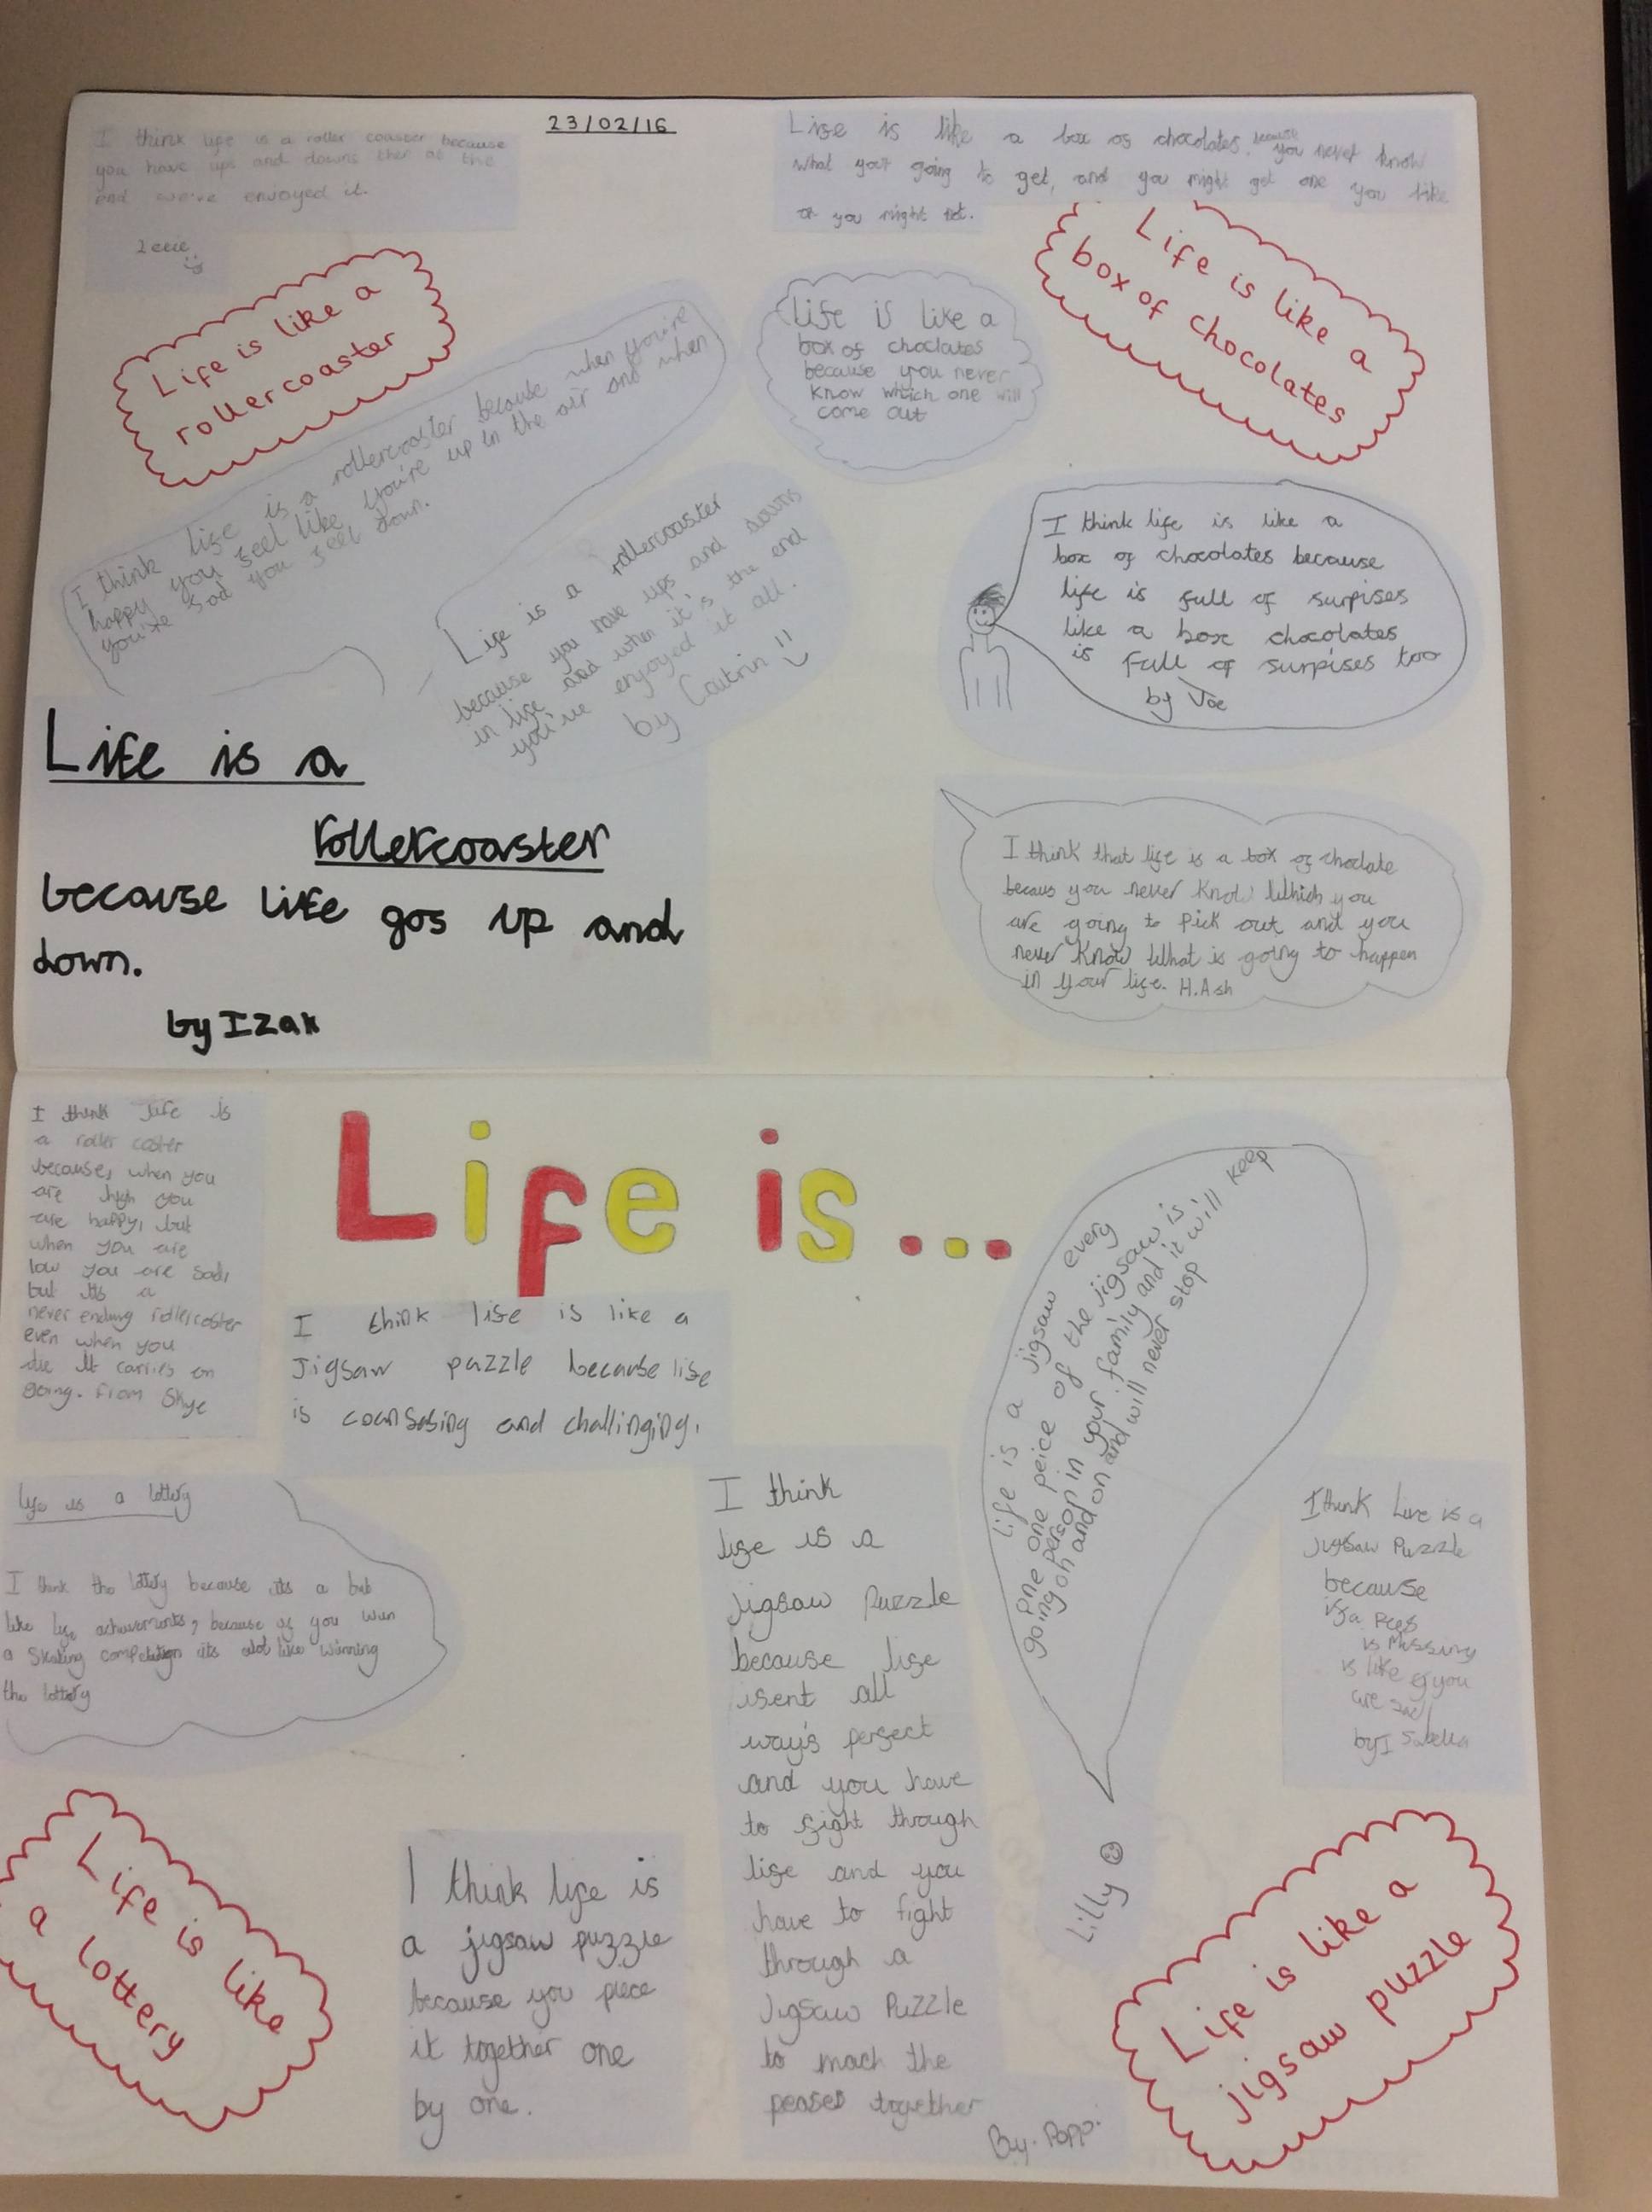 23/02/16
I think life is a roller coaster because
you have ups and downs then at the
end we've enjoyed it.
Life is like a
rollercoaster
I think life is a rollercoaster because when you're
happy you feel like you're up in the air and when
you're sad you feel down.
Life is a rollercoaster
because you have ups and downs
in life and when it's the end
you've enjoyed it all.
by Caitrin
Life is a
rollercoaster
because life gos up and
down.
by Izak
Life is like a box of chocolates. because you never know
what your going to get, and you might get one you like
or you might not.
Life is like a
box of chocolates
life is like a
box of choclates
because you never
know which one will
come out
I think life is like a
box of chocolates because
life is full of surpises
like a box chocolates
is full of surpises too
by Joe
I think that life is a box of choclate
becaus you never know which you
are going to pick out and you
never know what is going to happen
in your life. H.Ash
Life is...
I think life is
a roller coster
because, when you
are high you
are happy, but
when you are
low you are sad,
but its a
never ending rollercoster
even when you
die it carries on
going. from Skye
I think life is like a
Jigsaw puzzle because life
is counfosing and challinging.
life is a jigsaw every
one peice of the jigsaw is
one person in your family and it will keep
going on and on and will never stop
Lilly
life is a lottery
I think the lottery because its a bit
like life achivements, because if you win
a skating competition its alot like winning
the lottery
Life is like
a lottery
I think life is
a jigsaw puzzle
because you piece
it together one
by one.
I think
life is a
Jigsaw Puzzle
because life
isent all
way's perfect
and you have
to fight through
life and you
have to fight
through a
Jigsaw Puzzle
to mach the
peases together
By. Poppi
I think Live is a
Jigsaw Puzzle
because
if a Pees
is Missing
is like if you
are sad
by Isabella
Life is like a
jigsaw puzzle